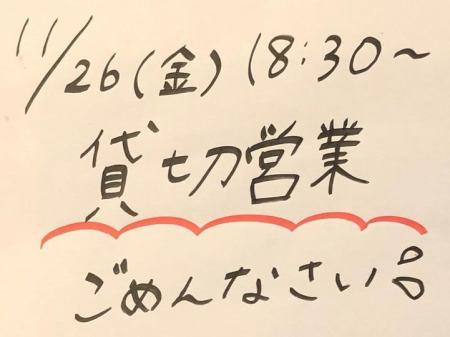 11/26(金) 18:30～
貸切営業
ごめんなさい。